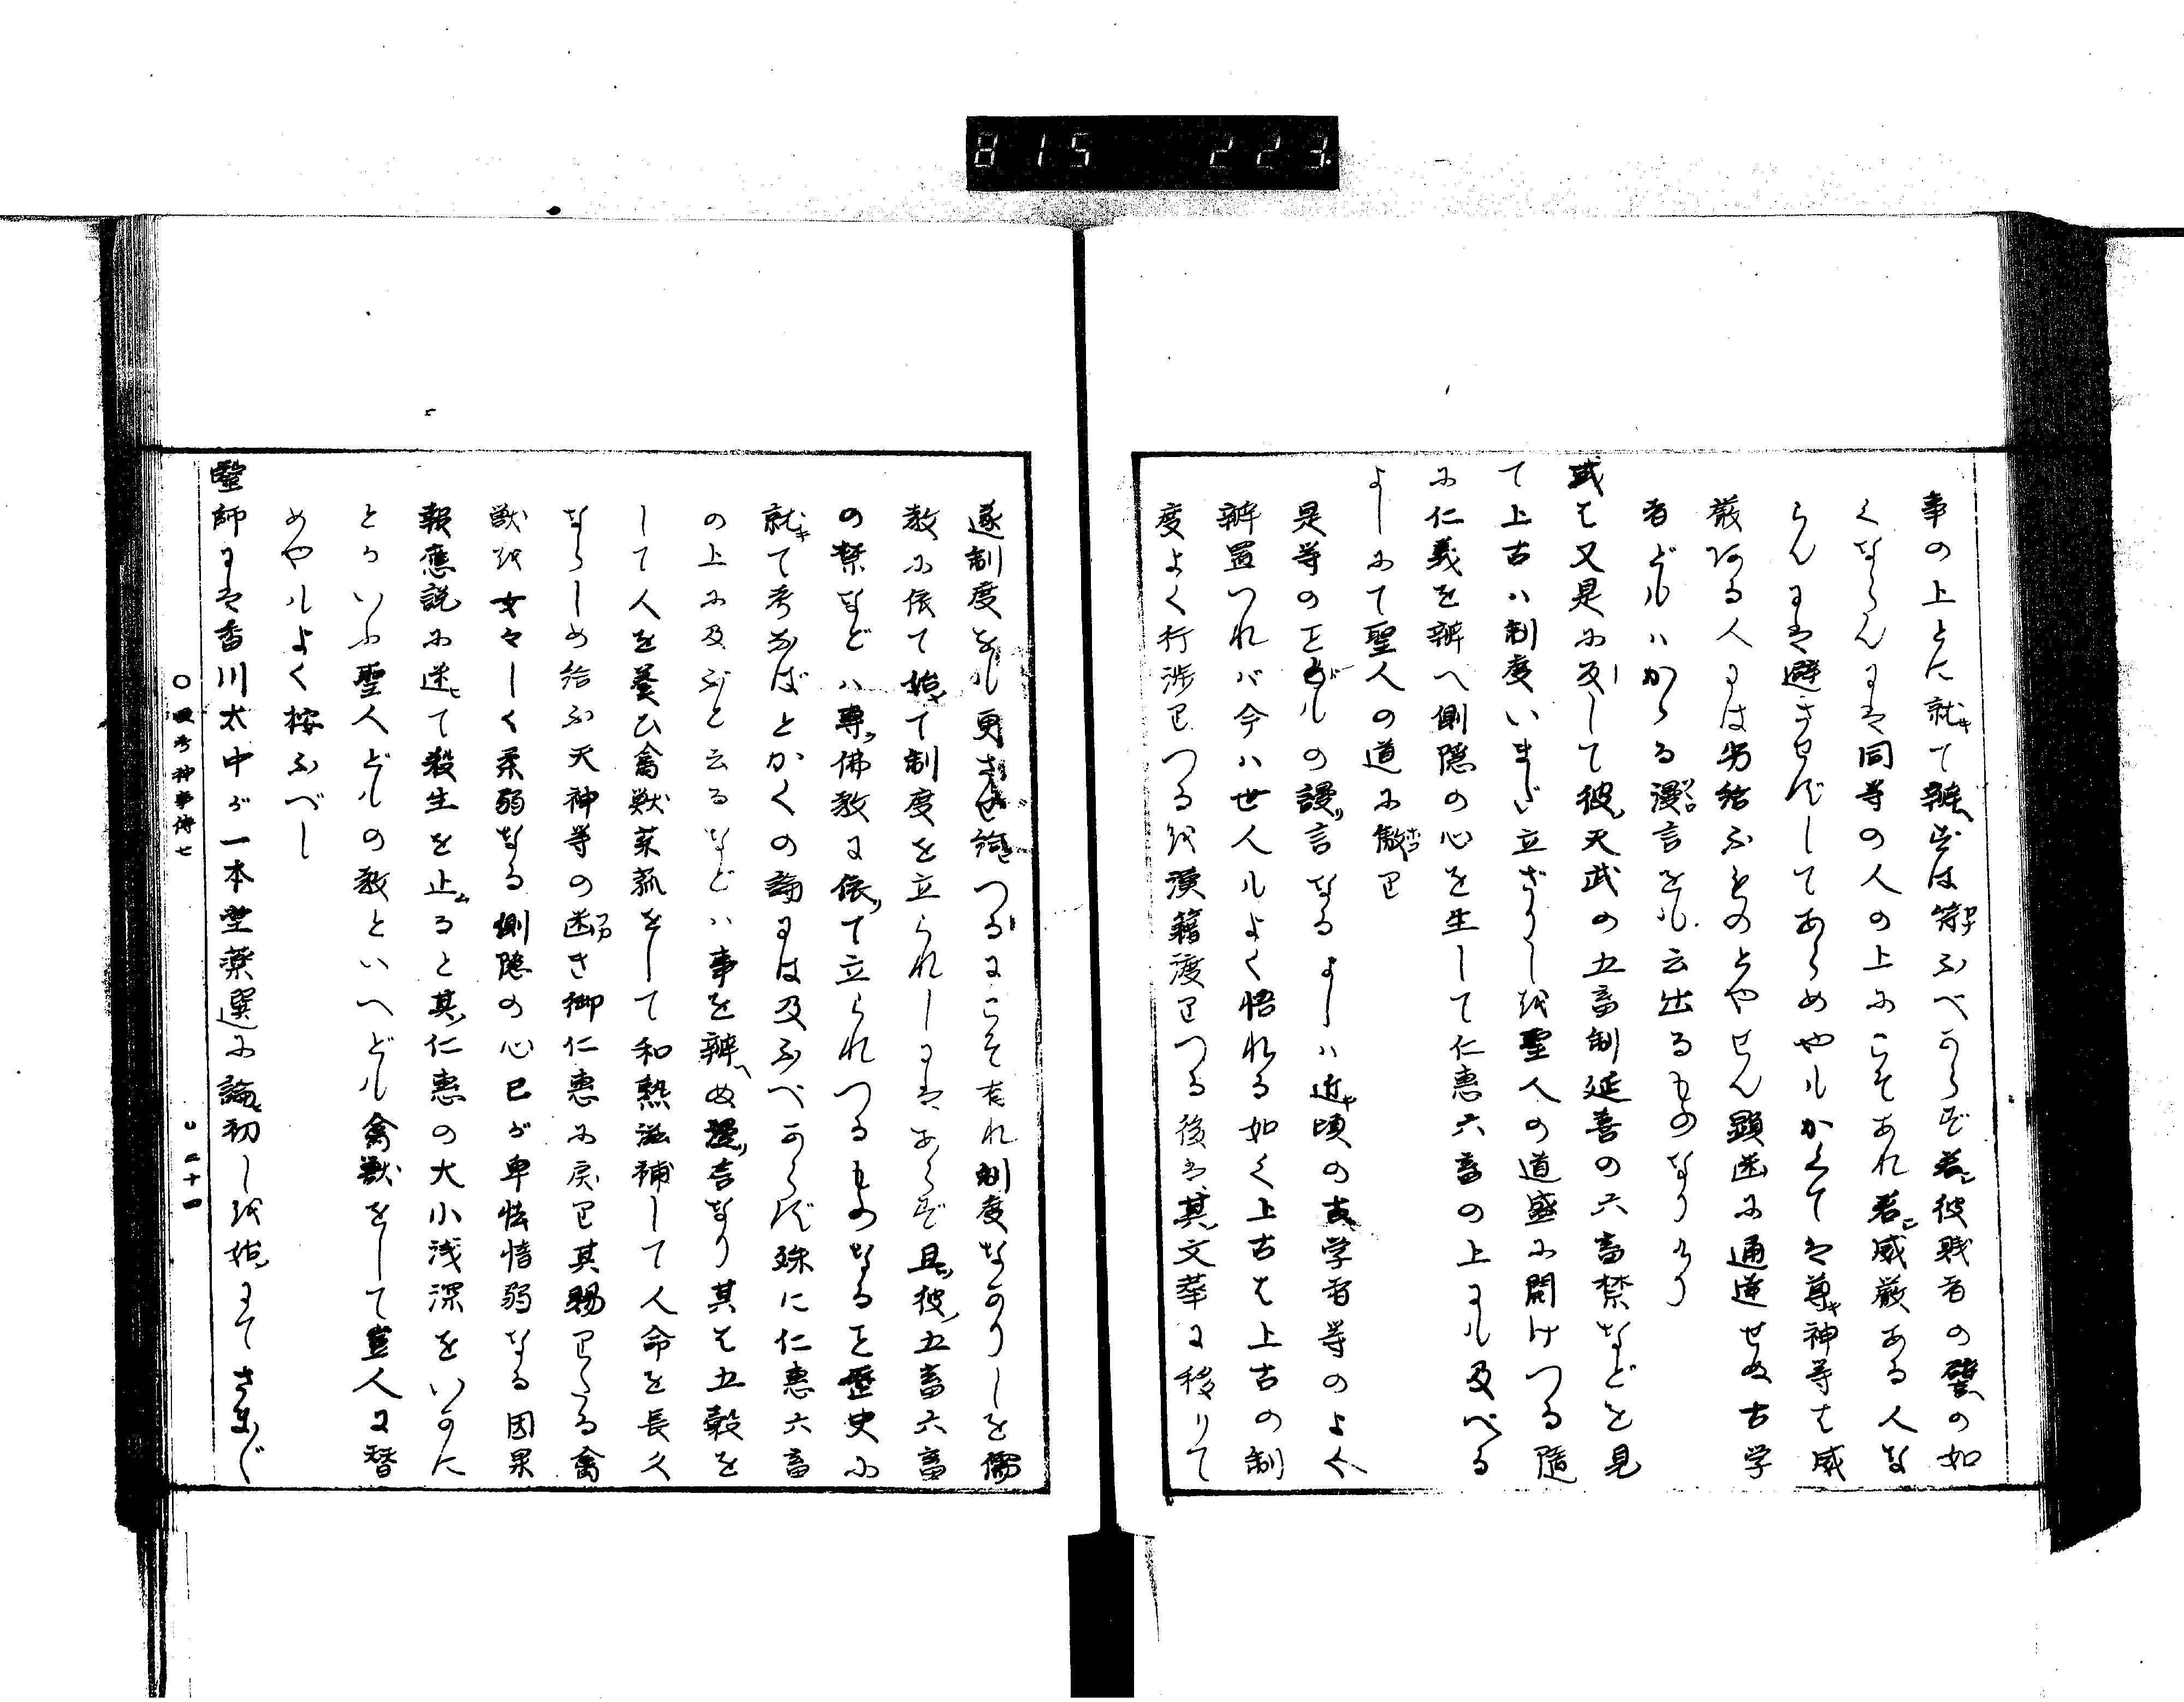 815 223.
事の上とに就て辨ずは符ふべからず若彼賤者の襲の如
くならんには同等の人の上にこそあれ若威厳ある人な
らんには避させずしてあらめやもかくては尊神等は威
厳ある人には劣給ふものとやせん顕幽に通達せぬ古学
者どもハかゝる漫言をも云出るものなりけり
或は又是に反して彼天武の五畜制延喜の六畜禁などを見
て上古ハ制度いまだ立ざりしを聖人の道盛に開けつる隨
に仁義を辨へ惻隠の心を生して仁恵六畜の上にも及べる
よしにて聖人の道に傲り
是等の
もの謾言なるよしハ近頃の古学者等のよく
辨置つれバ今ハ世人もよく悟れる如く上古は上古の制
度よく行渉りつるを漢籍渡りつる後は其文華に移りて
遂制度をも更させ給つるにこそ有れ制度なかりしを儒
教に依て始て制度を立られしにはあらず且彼五畜六畜
の禁などハ専佛教に依て立られつるものなるを歴史に
就て考なばとかくの論には及ふべからず殊に仁恵六畜
の上に及ぶと云るなどハ事を辨へぬ謾言なり其は五穀を
して人を養ひ禽獣菜蓏をして和熟滋補して人命を長久
ならしめ給ふ天神等の
き御仁恵に戻り其賜りたる禽
獣を女々しく柔弱なる惻隠の心己が卑怯惰弱なる因果
報應説に迷て殺生を止ると其仁恵の大小浅深をいかに
とかいふ聖人どもの教といへども禽獣をして豈人に替
めやもよく按ふべし
醫師には香川太中が一本堂薬選に論初しを始にてさまざ
○
神事傳七
○二十四